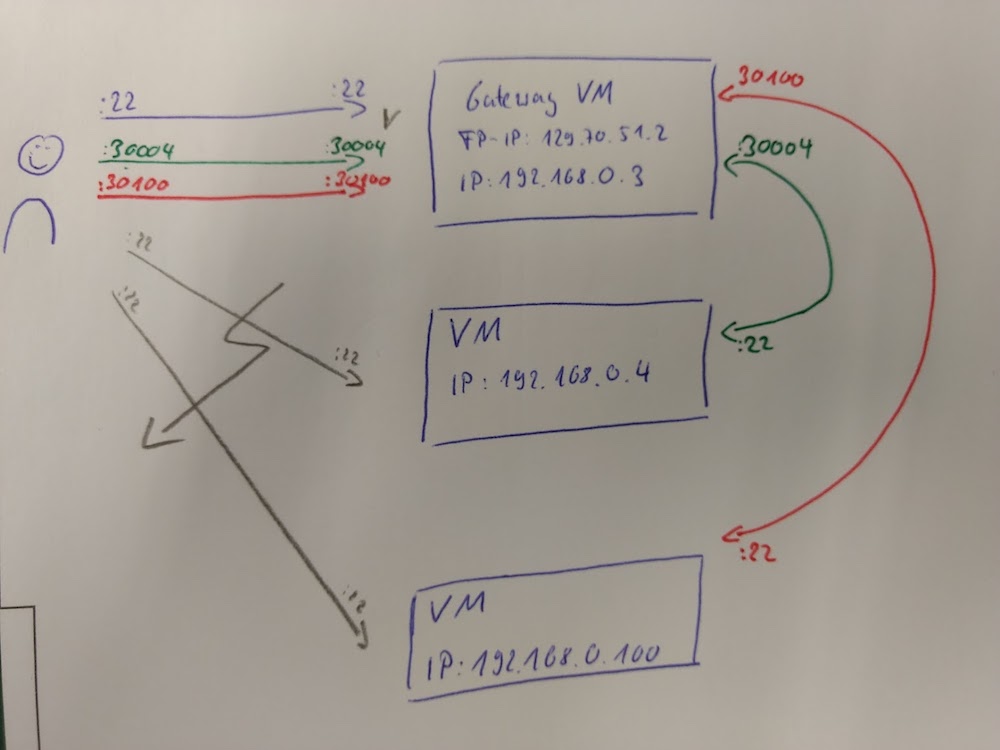 :22
:22
:30004
:30004
:30100
:30100
Gateway VM
FP-IP: 129.70.51.2
IP: 192.168.0.3
30100
:30004
:22
:22
:22
:22
VM
IP: 192.168.0.4
:22
VM
IP: 192.168.0.100
:22